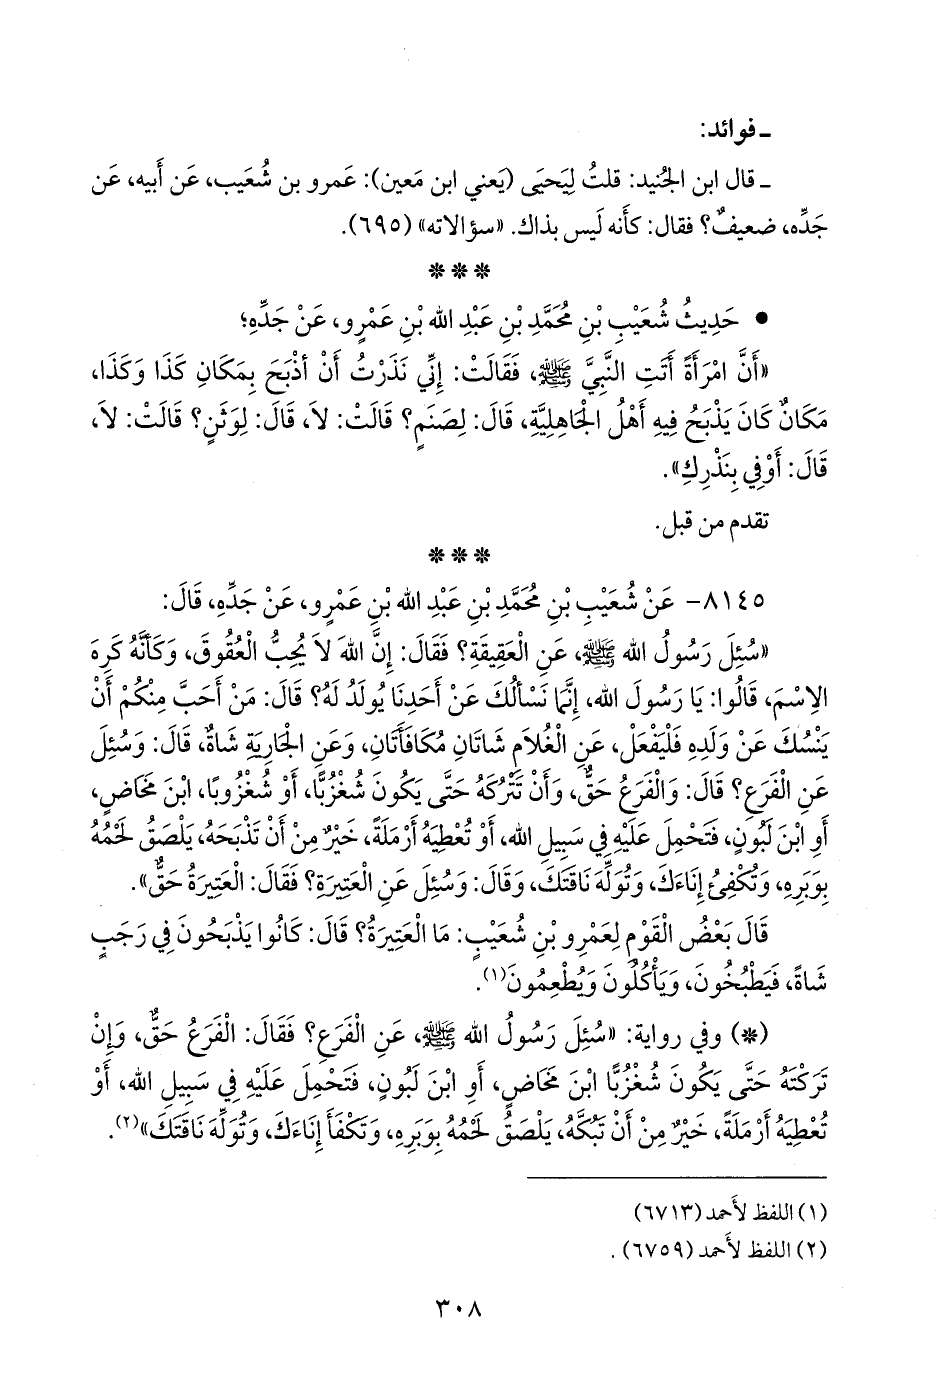 ـ فوائد:
ـ قال ابن الجُنيد: قلتُ لِيَحيَى (يَعني ابن مَعين): عَمرو بن شُعَيب، عَن أَبيه، عَن
جَدِّه، ضعيفٌ؟ فقال: كأَنه لَيس بذاك. «سؤالاته» (٦٩٥).
***
• حَدِيثُ شُعَيْبِ بْنِ مُحَمَّدِ بْنِ عَبْدِ الله بْنِ عَمْرٍو، عَنْ جَدِّهِ؛
«أَنَّ امْرَأَةً أَتَتِ النَّبِيَّ ﷺ، فَقَالَتْ: إِنِّي نَذَرْتُ أَنْ أَذْبَحَ بِمَكَانِ كَذَا وَكَذَا،
مَكَانٌ كَانَ يَذْبَحُ فِيهِ أَهْلُ الْجَاهِلِيَّةِ، قَالَ: لِصَنَمٍ؟ قَالَتْ: لاَ، قَالَ: لِوَثَنٍ؟ قَالَتْ: لاَ،
قَالَ: أَوْفِي بِنَذْرِكِ».
تقدم من قبل.
***
٨١٤٥- عَنْ شُعَيْبِ بْنِ مُحَمَّدِ بْنِ عَبْدِ الله بْنِ عَمْرٍو، عَنْ جَدِّهِ، قَالَ:
«سُئِلَ رَسُولُ الله ﷺ، عَنِ الْعَقِيقَةِ؟ فَقَالَ: إِنَّ اللهَ لاَ يُحِبُّ الْعُقُوقَ، وَكَأَنَّهُ كَرِهَ
الِاسْمَ، قَالُوا: يَا رَسُولَ الله، إِنَّمَا نَسْأَلُكَ عَنْ أَحَدِنَا يُولَدُ لَهُ؟ قَالَ: مَنْ أَحَبَّ مِنْكُمْ أَنْ
يَنْسُكَ عَنْ وَلَدِهِ فَلْيَفْعَلْ، عَنِ الْغُلاَمِ شَاتَانِ مُكَافَأَتَانِ، وَعَنِ الْجَارِيَةِ شَاةٌ، قَالَ: وَسُئِلَ
عَنِ الْفَرَعِ؟ قَالَ: وَالْفَرَعُ حَقٌّ، وَأَنْ تَتْرُكَهُ حَتَّى يَكُونَ شُغْزُبًّا، أَوْ شُغْزُوبًا، ابْنَ مَخَاضٍ،
أَوِ ابْنَ لَبُونٍ، فَتَحْمِلَ عَلَيْهِ فِي سَبِيلِ الله، أَوْ تُعْطِيَهُ أَرْمَلَةً، خَيْرٌ مِنْ أَنْ تَذْبَحَهُ، يَلْصَقُ لَحْمُهُ
بِوَبَرِهِ، وَتُكْفِئُ إِنَاءَكَ، وَتُوَلِّهَ نَاقَتَكَ، وَقَالَ: وَسُئِلَ عَنِ الْعَتِيرَةِ؟ فَقَالَ: الْعَتِيرَةُ حَقٌّ».
قَالَ بَعْضُ الْقَوْمِ لِعَمْرِو بْنِ شُعَيْبٍ: مَا الْعَتِيرَةُ؟ قَالَ: كَانُوا يَذْبَحُونَ فِي رَجَبٍ
شَاةً، فَيَطْبُخُونَ، وَيَأْكُلُونَ وَيُطْعِمُونَ(١).
(*) وفي رواية: «سُئِلَ رَسُولُ الله ﷺ، عَنِ الْفَرَعِ؟ فَقَالَ: الْفَرَعُ حَقٌّ، وَإِنْ
تَرَكْتَهُ حَتَّى يَكُونَ شُغْزُبًّا ابْنَ مَخَاضٍ، أَوِ ابْنَ لَبُونٍ، فَتَحْمِلَ عَلَيْهِ فِي سَبِيلِ الله، أَوْ
تُعْطِيَهُ أَرْمَلَةً، خَيْرٌ مِنْ أَنْ تَبُكَّهُ، يَلْصَقُ لَحْمُهُ بِوَبَرِهِ، وَتَكْفَأَ إِنَاءَكَ، وَتُوَلِّهَ نَاقَتَكَ»(٢).
(١) اللفظ لأَحمد (٦٧١٣)
(٢) اللفظ لأَحمد (٦٧٥٩) .
٣٠٨